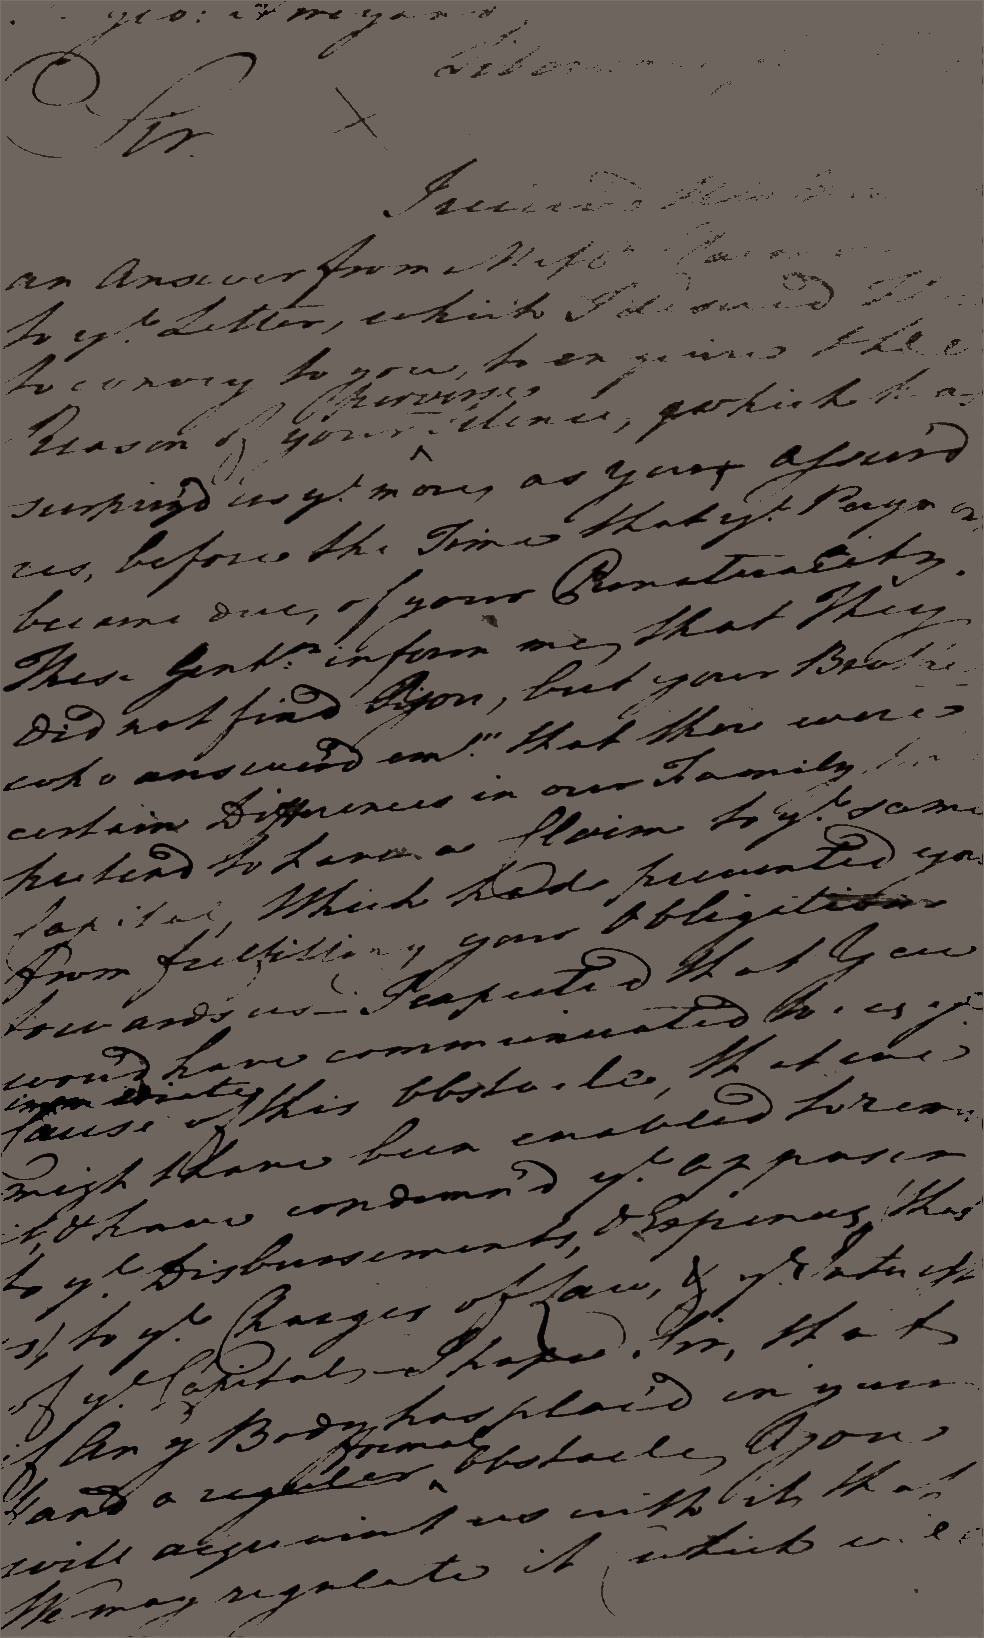 Sir.
I receiv'd
an Answer from Mess.rs
to y.r Letter, which I desired
to convey to you, to enquire the
Reason of your perverse silence, which has
surpriz'd us y.e more, as you assur'd
us, before the Time that y.e Paym
became due, of your Punctuality.
These Gent.n inform me, that They
did not find You, but your Brothe
who answer'd em." that there were
certain Differences in our Family
pretend to have a Claim to y.e same
Capital, Which had prevented you
from fulfilling your Obligations
towards us — I expected that You
would have communicated to us y.e
immediate
Cause of this Obstacle, that we
might have been enabled to rem
it, & have condemn'd y.e opposer
to y.e Disbursements, & Expences, that
is, to y.e Charges of Law, & y.e Interest
of y.e Capital — I hope Sir, that
if Any Body has plac'd in your
formal
Hand a regular Obstacle, You
will acquaint us with it, that
We may regulate it (which will